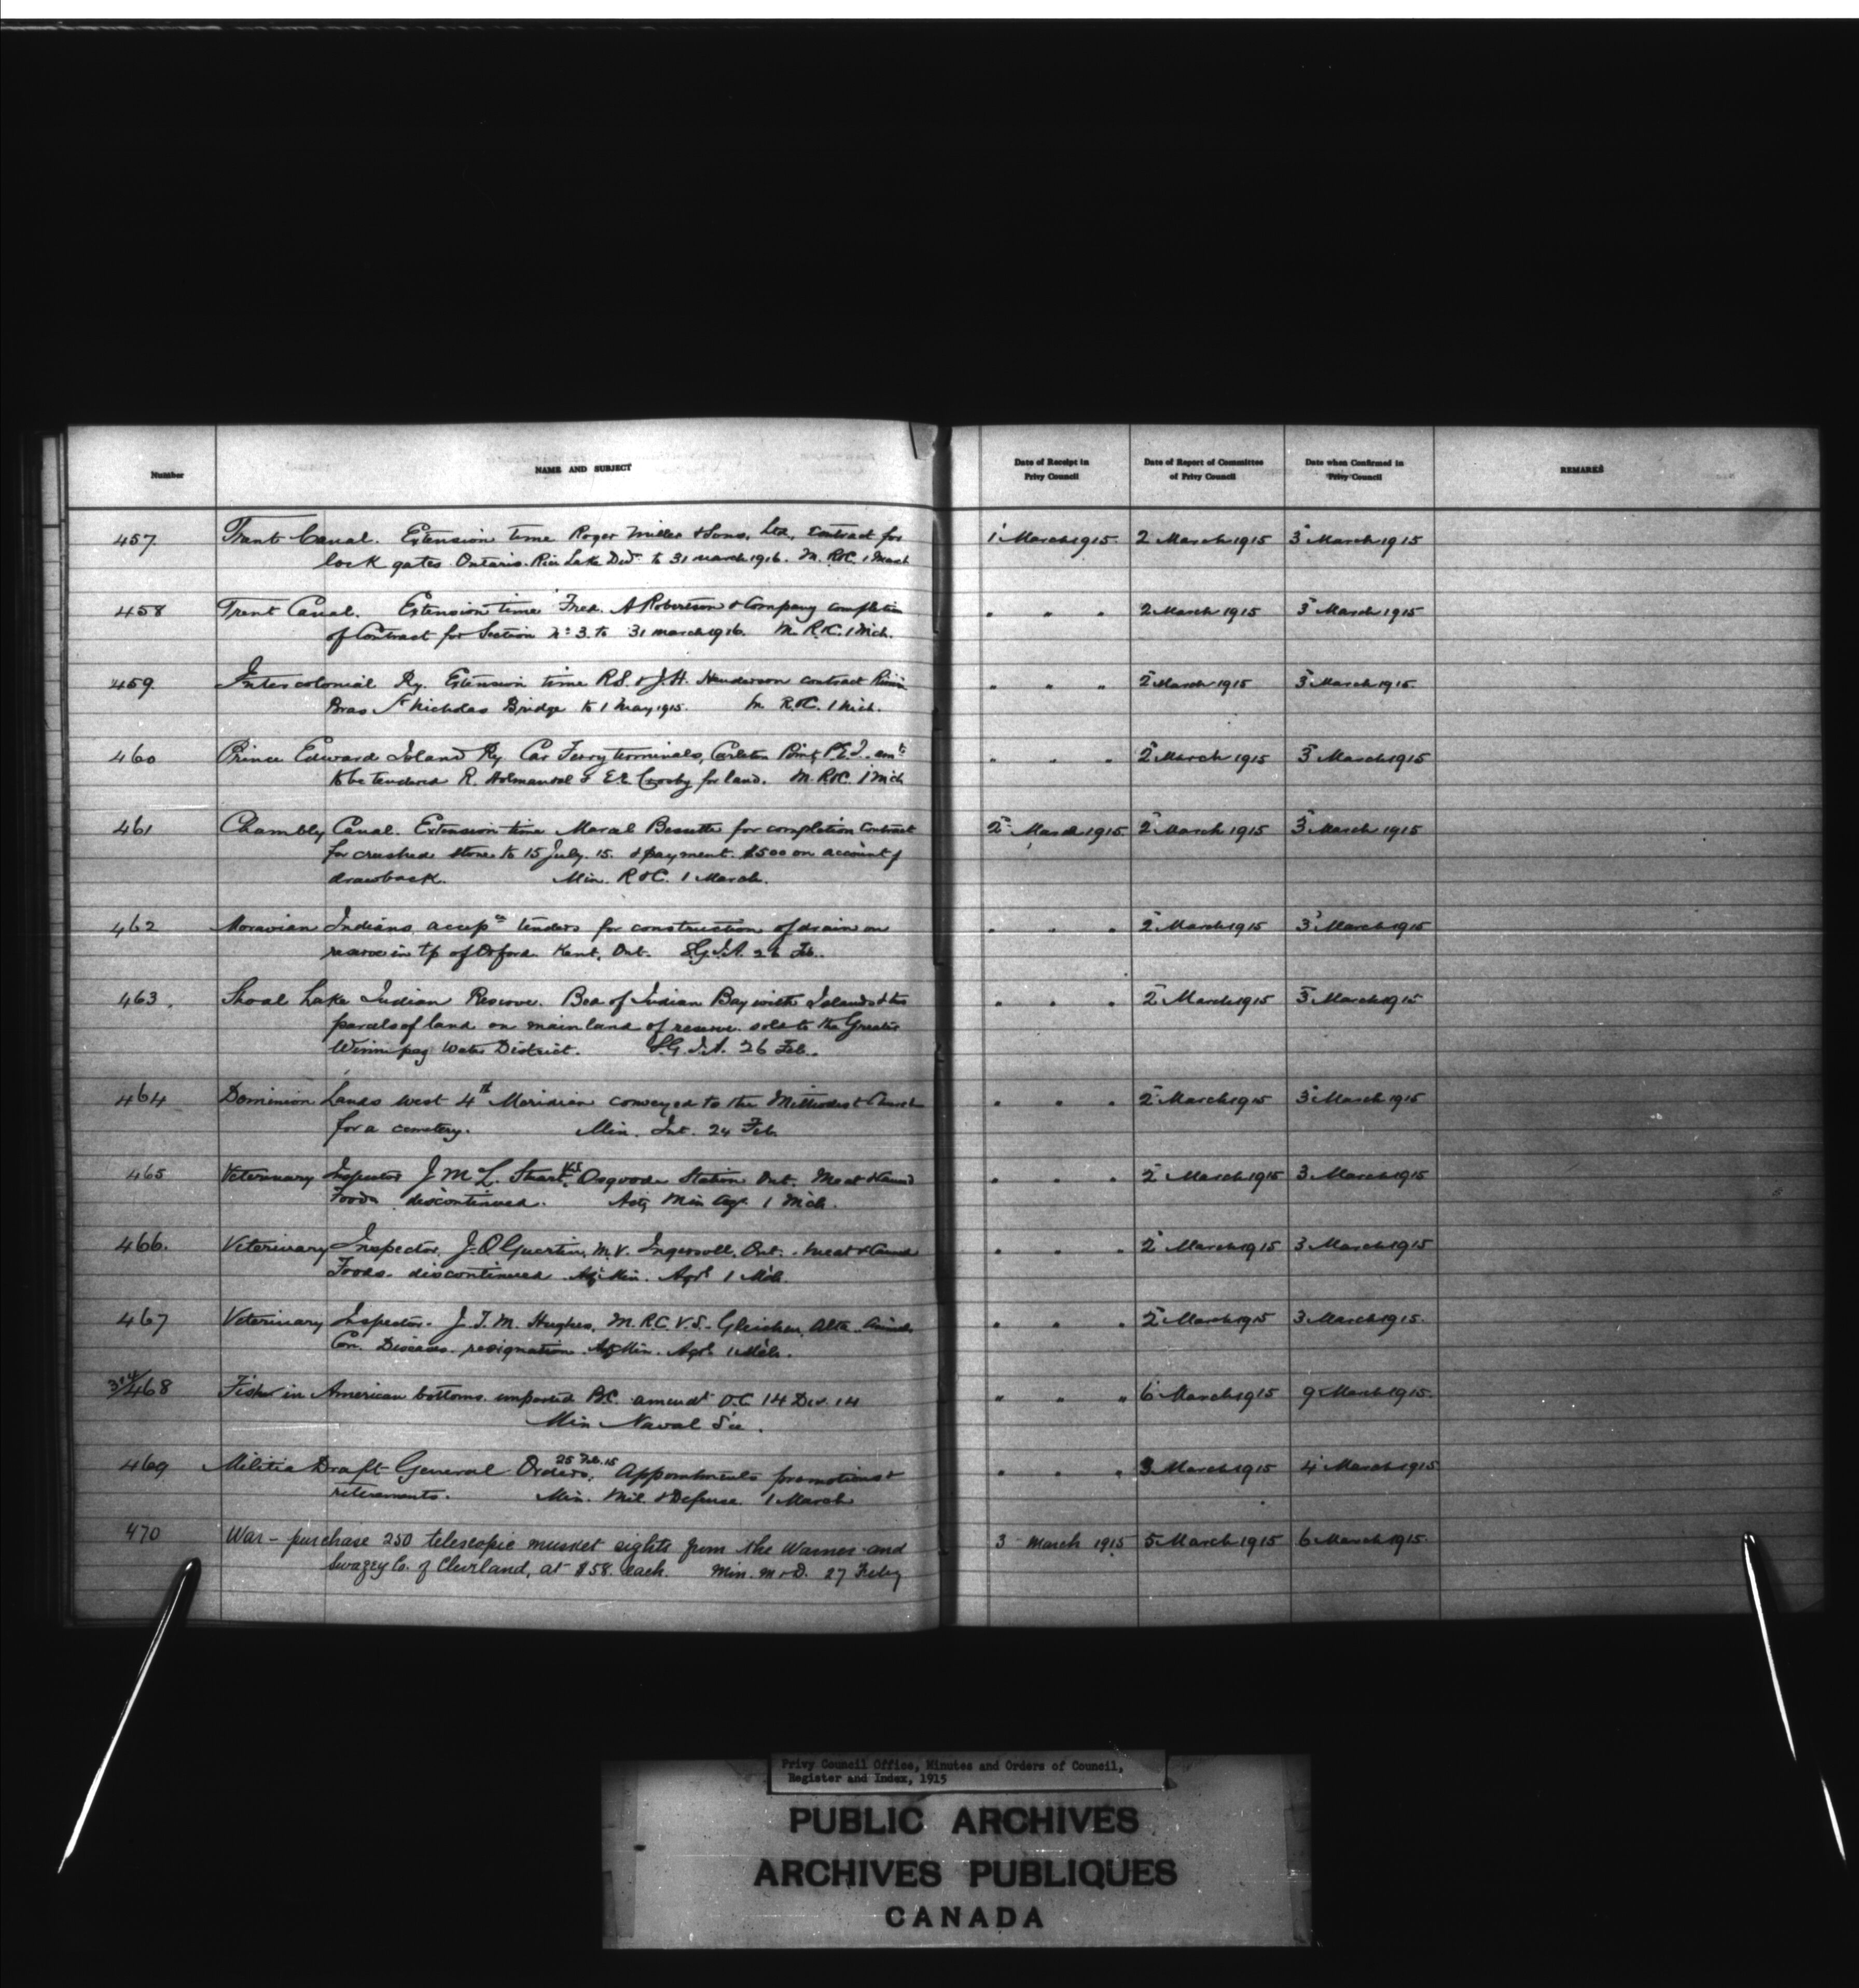 Number NAME AND SUBJECT Date of Receipt in Privy Council Date of Report of Committee of Privy Council Date when Confirmed in Privy Council REMARKS
457. Trent Canal. Extension time Roger Miller & Sons, Ltd, contract for 1 March 1915. 2 March 1915 3 March 1915
lock gates Ontario-Rice Lake Divn to 31 March 1916. M. R&C. 1 March
458 Trent Canal. Extension time Fred. A Robertson & Company completion " " " 2 March 1915 3 March 1915
of Contract for Section No 3. to 31 March 1916. M. R&C. 1 Mch.
459. Intercolonial Ry. Extension time R.S. & J.H. Henderson contract " " " 2 March 1915 3 March 1915.
Bras St Nicholas Bridge to 1 May 1915. M. R&C. 1 Mch.
460 Prince Edward Island Ry. Car Ferry terminals, Carleton Point, P.E.I. amts " " " 2 March 1915 3 March 1915
to be tendered R. & E.E. Crosby for land. M. R&C. 1 Mch
461 Chambly Canal. Extension time Marcel Bessette for completion contract 2 March 1915 2 March 1915 3 March 1915
for crushed stone to 15 July. 15. & payment $500 on account of
drawback. Min. R&C. 1 March.
462 Moravian Indians accepce tenders for construction of drain on " " " 2 March 1915 3 March 1915
reserve in tp of Orford. Kent, Ont. S.G.I.A. 26 Feb.
463. Shoal Lake Indian Reserve. Bed of Indian Bay with Islands & two " " " 2 March 1915 3 March 1915
parcels of land on mainland of reserve sold to the Greater
Winnipeg Water District. S.G.I.A. 26 Feb.
464 Dominion Lands West 4th Meridian conveyed to the Methodist Church " " " 2 March 1915 3 March 1915
for a cemetery. Min. Int. 24 Feb
465 Veterinary Inspector J. McL. Stuart, V.S. Osgoode Station Ont. Meat & Canned " " " 2 March 1915 3 March 1915
Foods discontinued. Actg Min Agr 1 Mch.
466. Veterinary Inspector, J.O. Guertin, M.V. Ingersoll, Ont. Meat & Canned " " " 2 March 1915 3 March 1915
Foods. discontinued Ag Min. Agrl 1 Mch.
467 Veterinary Inspector. J.T.M. Hughes, M.R.C.V.S. Gleichen, Alta. Animals " " " 2 March 1915 3 March 1915.
Con. Diseases. resignation Ag Min. Agrl. 1 Mch.
468 Fish in American bottoms imported B.C. amendt O.C. 14 Dec. 14 " " " 6 March 1915 9 March 1915.
Min Naval Sce.
469 Militia Draft General Orders, 25 Feb. 15 Appointments promotions & " " " 3 March 1915 4 March 1915
retirements. Min. Mil. & Defence. 1 March
470 War - purchase 250 telescopic musket sights from the Warner and 3 March 1915 5 March 1915 6 March 1915.
Swazey Co. of Cleveland, at $58. each. Min. M&D. 27 Feby
Privy Council Office, Minutes and Orders of Council,
Register and Index, 1915
PUBLIC ARCHIVES
ARCHIVES PUBLIQUES
CANADA